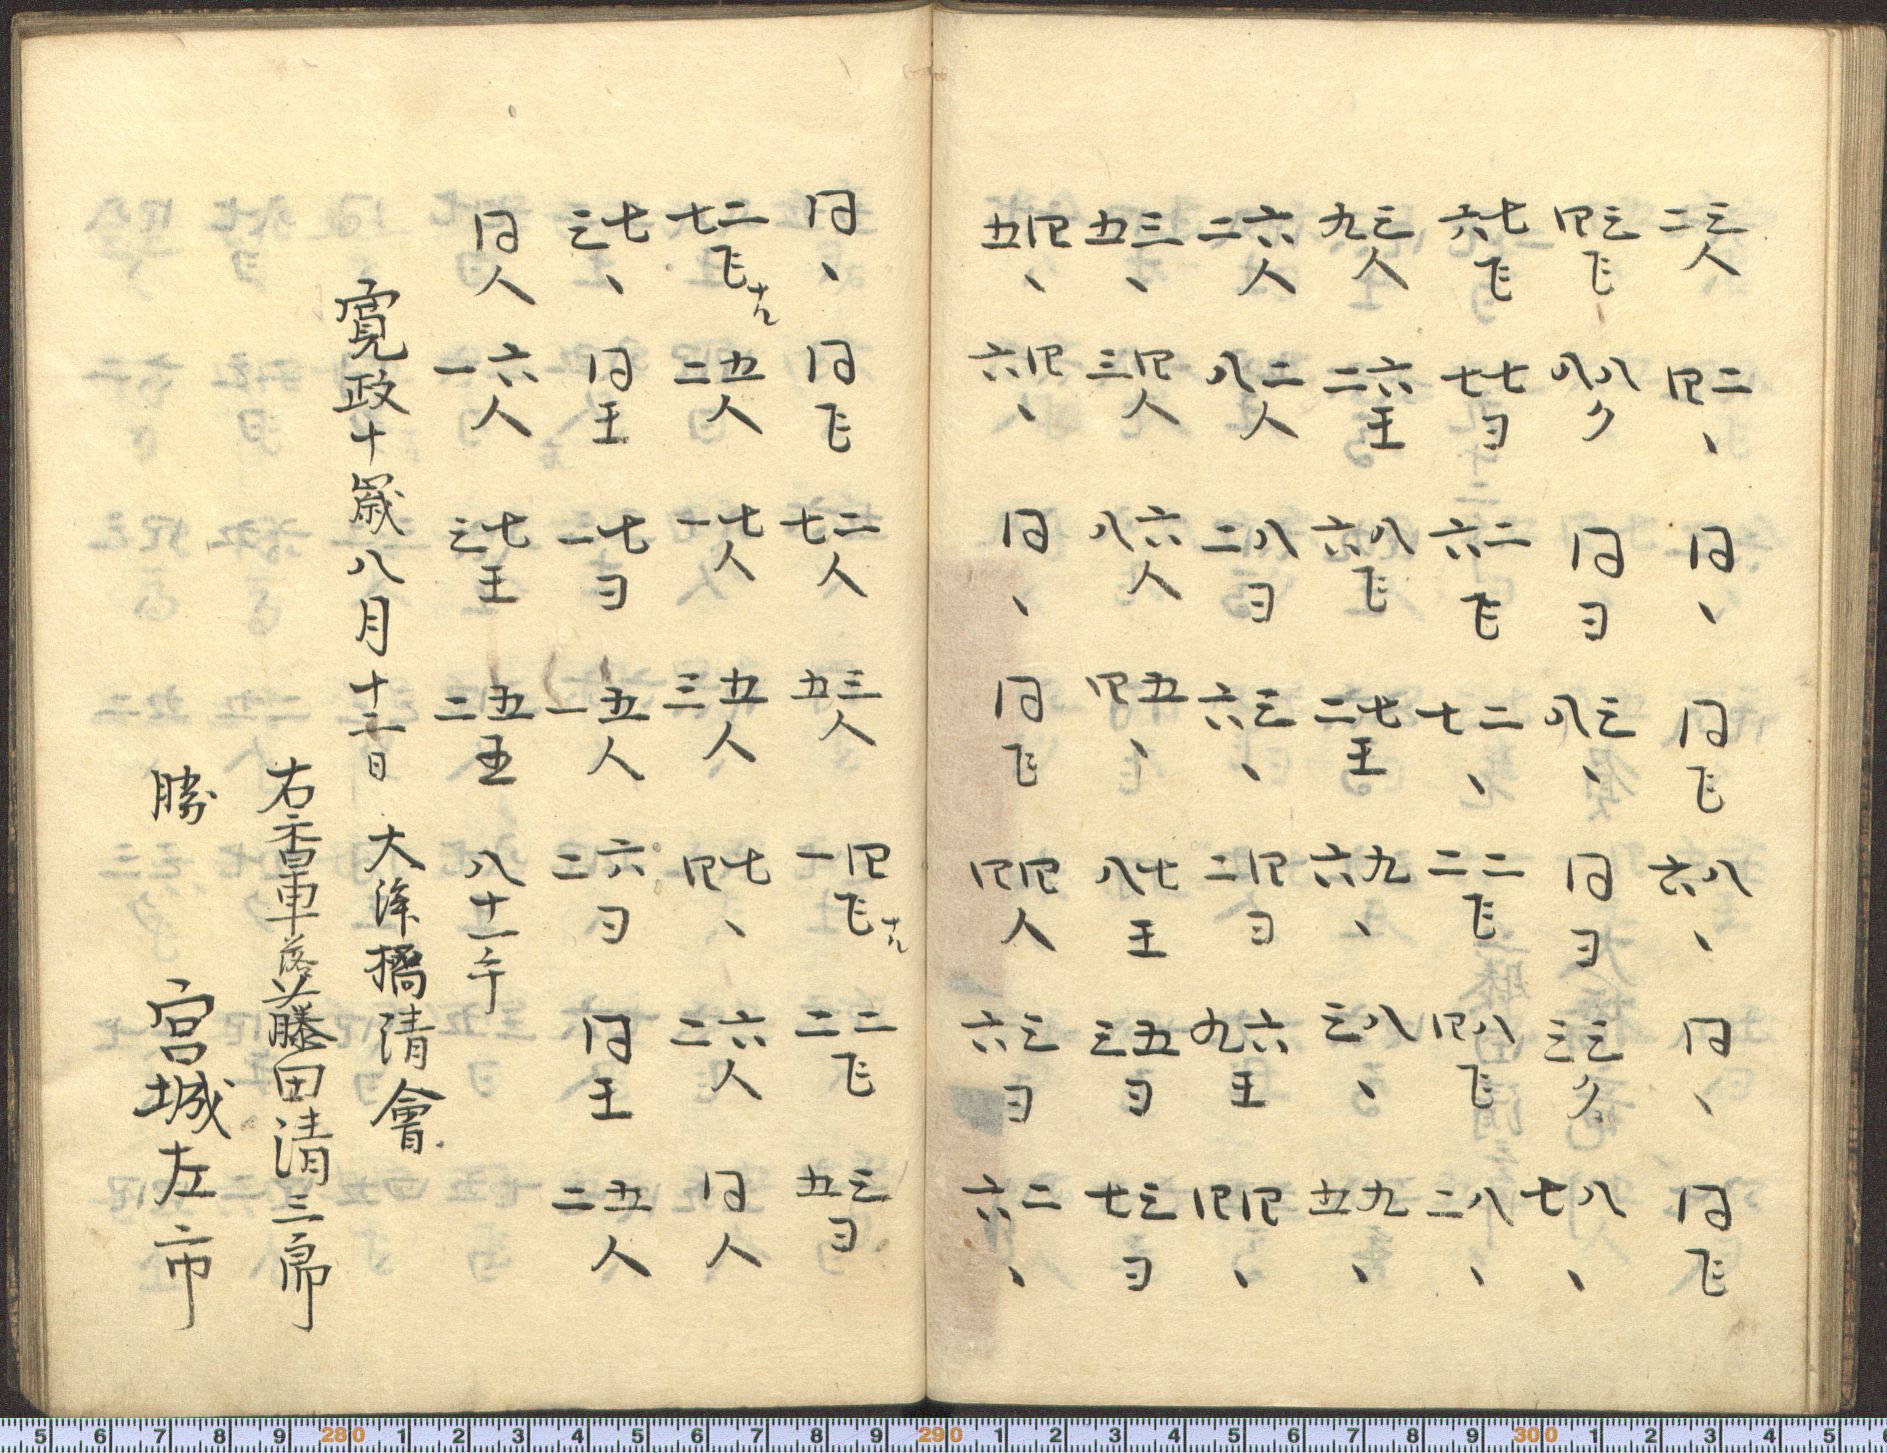 三二人 二四、 同、 同飞 八六、 同、 同飞
三四飞 八八ク 同ヨ 三八、 同ヨ 三三ク 八七、
七六飞 七七ヨ 二六飞 二七、 二二飞 八四飞 八二、
三九人 六二王 八六飞 七二王 九六、 八三、 九五、
六二人 二八人 八二ヨ 三六、 四二ヨ 六九王 四四、
三五、 四三人 六八人 五四、 七八王 五三ヨ 三七ヨ
四五、 四六、 同、 同飞 四四人 三六ヨ 二六、
同、 同飞 二七人 三五人 四一飞ナル 二二飞 三五ヨ
二七飞ナル 五二人 七一人 五三人 七四、 六三人 同人
七三、 同王 七二ヨ 五一人 六二ヨ 同王 五二人
同人 六一人 七三王 五二王 八十一手
寛政十歳八月十二日 大津橋清會
右香車落 藤田清三郎
勝 宮城左市